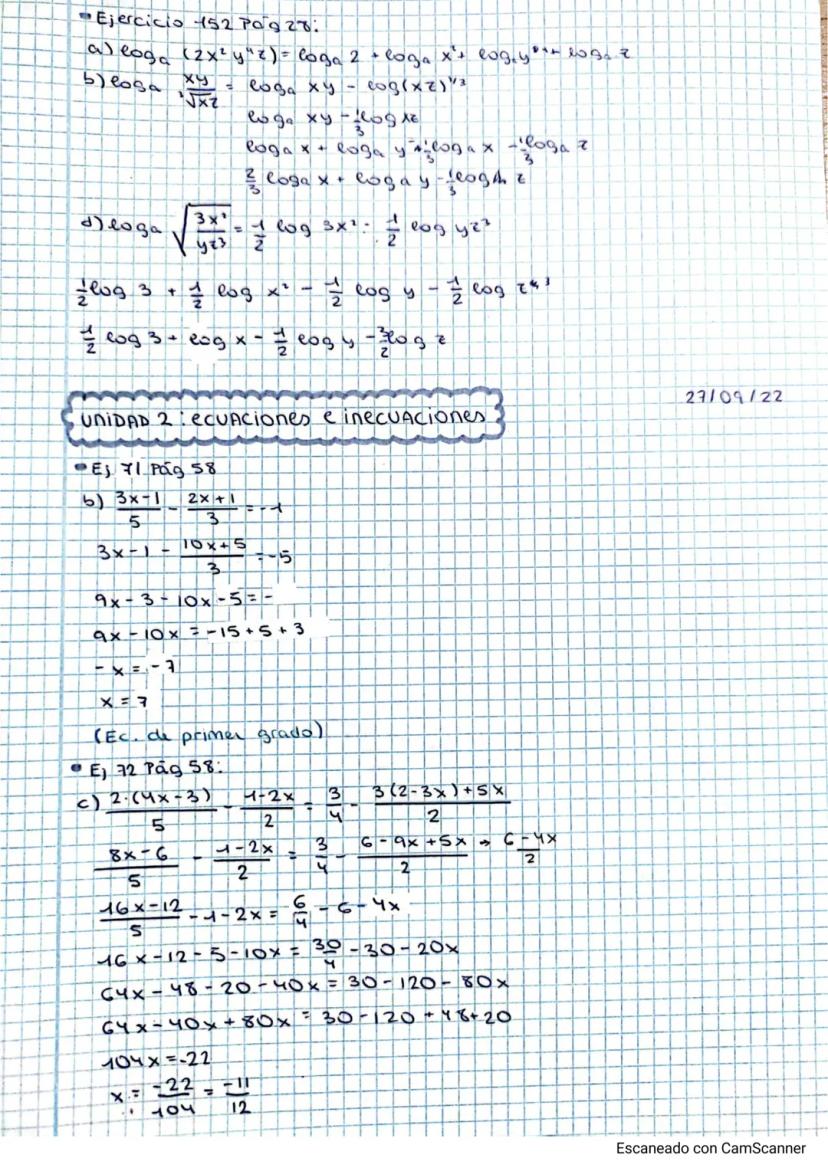 • Ejercicio 152 Pág 28:
a) loga (2x² y⁴ z) = loga 2 + loga x² + loga y⁴ + loga z
b) loga xy/³√xz = loga xy - log(xz)^1/3
loga xy - 1/3 log xz
loga x + loga y - 1/3 loga x - 1/3 loga z
2/3 loga x + loga y - 1/3 loga z
d) loga √(3x²/yz³) = 1/2 log 3x² - 1/2 log yz³
1/2 log 3 + 1/2 log x² - 1/2 log y - 1/2 log z³
1/2 log 3 + log x - 1/2 log y - 3/2 log z
27/09/22
UNIDAD 2: ecuaciones e inecuaciones
• Ej 71 Pág 58
b) (3x-1)/5 - (2x+1)/3 = -1
3x-1 - (10x+5)/3 = -5
9x - 3 - 10x - 5 = -
9x - 10x = -15 + 5 + 3
-x = -7
x = 7
(Ec. de primer grado)
• Ej 72 Pág 58:
c) 2·(4x-3)/5 - (1-2x)/2 = 3/4 - (3(2-3x)+5x)/2
(8x-6)/5 - (1-2x)/2 = 3/4 - (6-9x+5x)/2 → (6-4x)/2
(16x-12)/5 - 1-2x = 6/4 - 6 - 4x
16x-12-5-10x = 30/4 - 30 - 20x
64x - 48 - 20 - 40x = 30 - 120 - 80x
64x - 40x + 80x = 30 - 120 + 48 + 20
104x = -22
x = -22/104 = -11/12
Escaneado con CamScanner